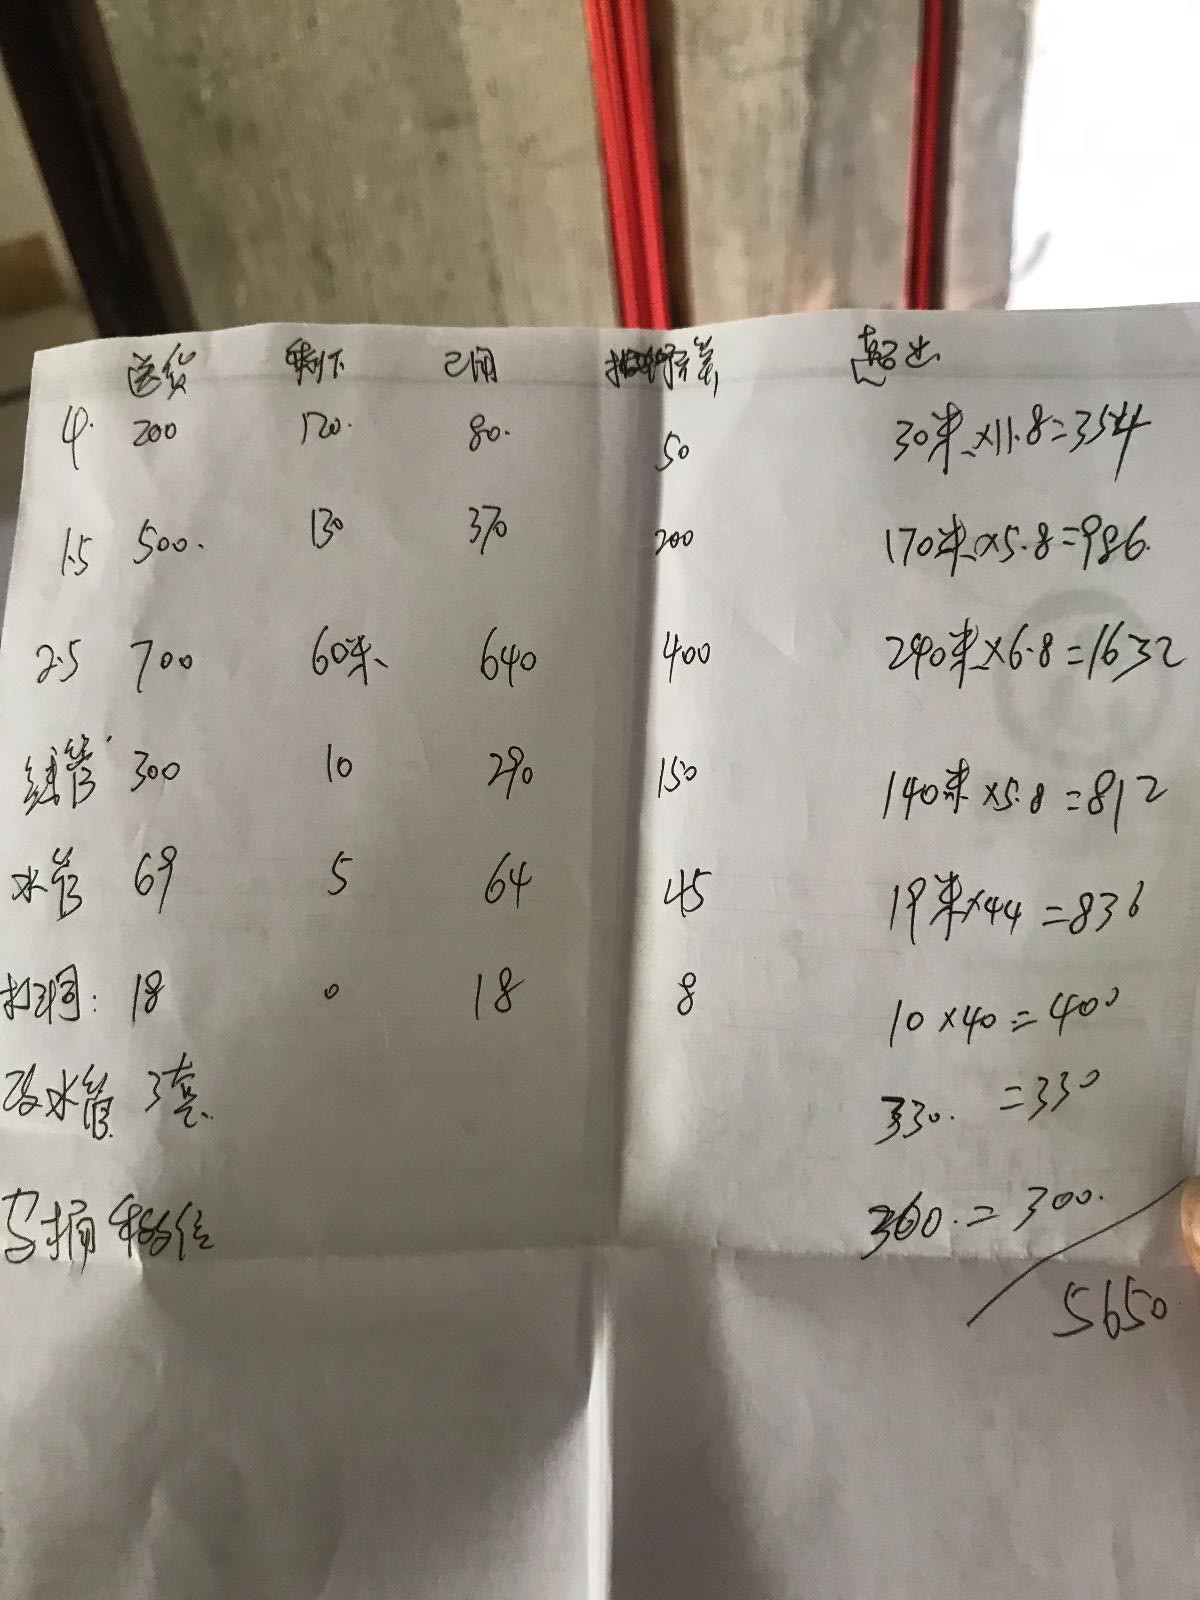 送货 剩下 已用 超出
4. 200 120. 80. 50 30米×11.8=354
1.5 500. 130 370 200 170米×5.8=986.
2.5 700 60米、 640 400 240米×6.8=1632
线管 300 10 290 150 140米×5.8=812
水管 69 5 64 45 19米×44=836
打洞: 18 0 18 8 10×40=400
改水管 3套. 330. =330
马桶移位 360.=300.
5650